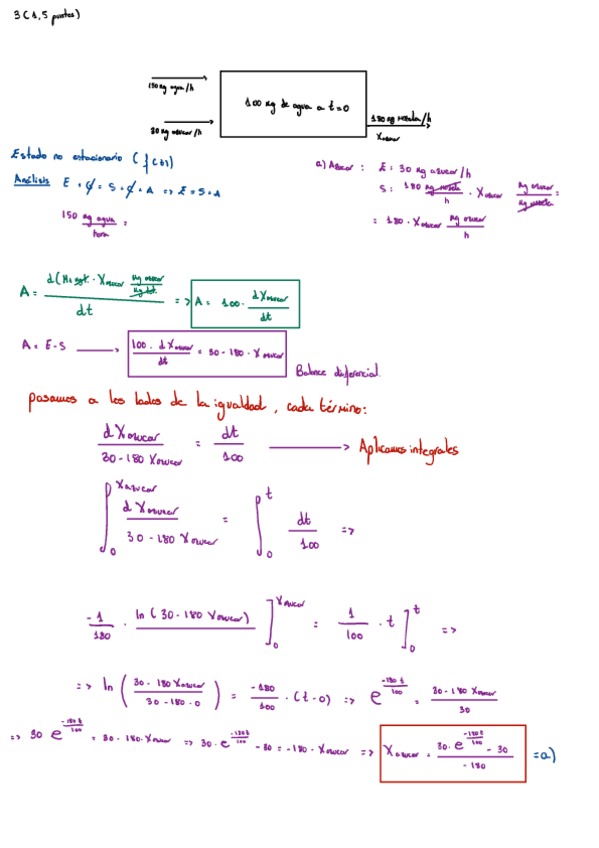 3 (1,5 puntos)
150 kg agua/h
100 kg de agua a t=0
30 kg azucar/h
180 kg mezcla/h
Xazucar
Estado no estacionario (f(t))
a) Azucar : E = 30 kg azucar/h
Análisis E + G = S + C + A => E = S + A
S = 180 kg mezcla/h · Xazucar kg azucar/kg mezcla =
150 kg agua/hora =
= 180 · Xazucar kg azucar/h
A = d(M · Xazucar kg azucar/kg tot.)/dt => A = 100 · dXazucar/dt
A = E - S → 100 · dXazucar/dt = 30 - 180 · Xazucar
Balance diferencial.
pasamos a los lados de la igualdad, cada término:
dXazucar/(30 - 180 Xazucar) = dt/100 → Aplicamos integrales
∫₀^Xazucar dXazucar/(30 - 180 Xazucar) = ∫₀^t dt/100 =>
-1/180 · ln(30 - 180 Xazucar)]₀^Xazucar = 1/100 · t]₀^t =>
=> ln((30 - 180 Xazucar)/(30 - 180 · 0)) = -180/100 · (t - 0) => e^(-180t/100) = (30 - 180 Xazucar)/30
=> 30 e^(-180t/100) = 30 - 180 · Xazucar => 30 · e^(-180t/100) - 30 = -180 · Xazucar => Xazucar = (30 · e^(-180t/100) - 30)/-180 = a)